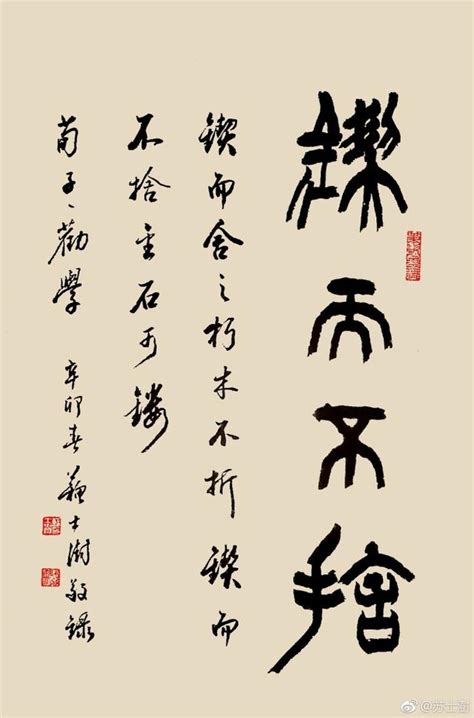 鍥而不捨
鍥而舍之朽木不折鍥而
不捨金石可鏤
荀子、勸學
辛卯春蘇士澍敬錄
@苏士澍